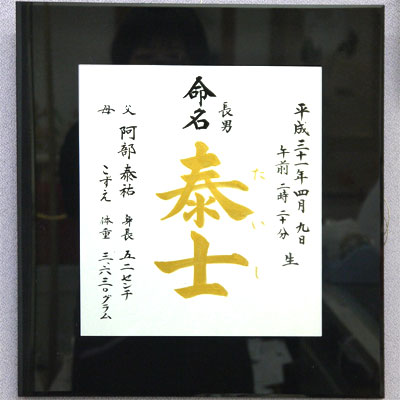 平成三十一年四月九日
午前二時二十分 生
長男
命名
泰士
たいし
父 阿部泰祐
母 こずえ
身長 五二センチ
体重 三、六三〇グラム